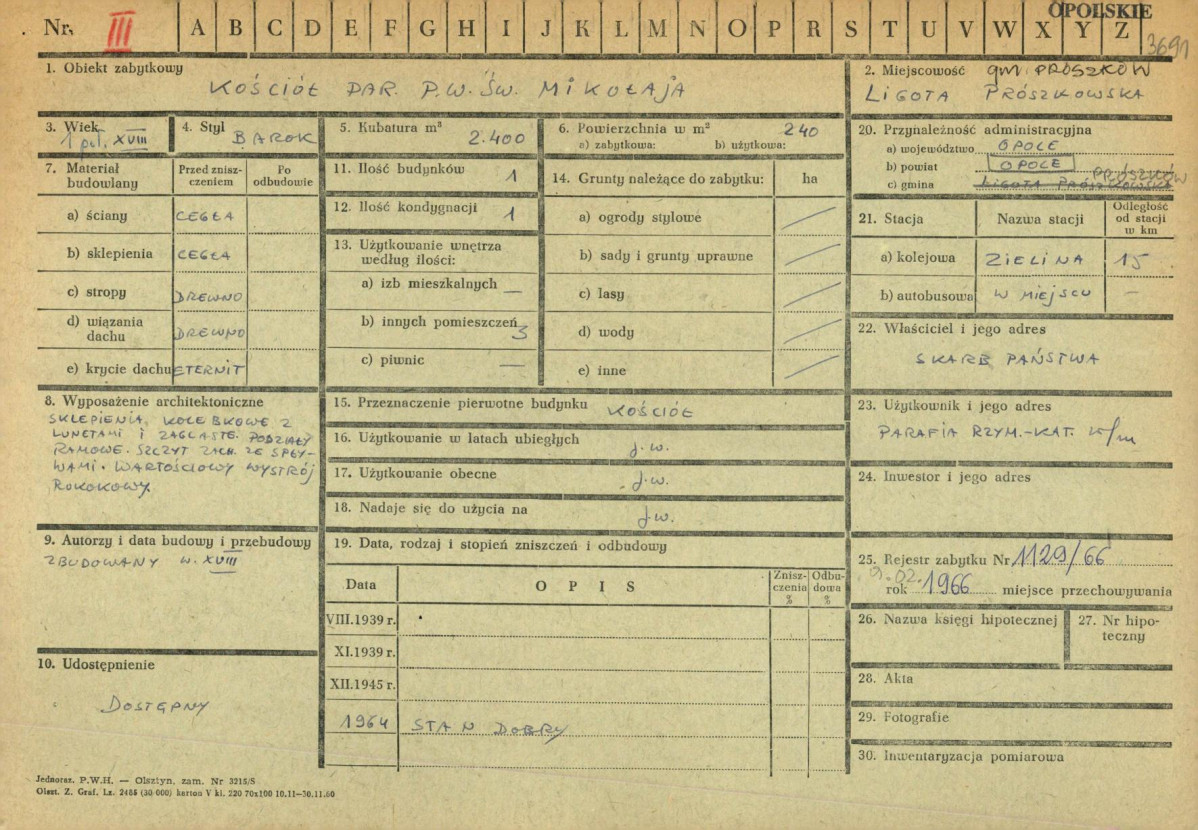 OPOLSKIE
Nr. III A B C D E F G H I J K L M N O P R S T U V W X Y Z
3691
1. Obiekt zabytkowy
KOŚCIÓŁ PAR. P.W. ŚW. MIKOŁAJA
2. Miejscowość gm. PRÓSZKÓW
LIGOTA PRÓSZKOWSKA
3. Wiek
1 poł. XVIII
4. Styl
BAROK
5. Kubatura m³
2.400
6. Powierzchnia w m² 240
a) zabytkowa: b) użytkowa:
7. Materiał budowlany
Przed zniszczeniem
Po odbudowie
a) ściany CEGŁA
b) sklepienia CEGŁA
c) stropy DREWNO
d) wiązania dachu DREWNO
e) krycie dachu ETERNIT
8. Wyposażenie architektoniczne
SKLEPIENIA KOLEBKOWE Z
LUNETAMI I ŻAGLASTE. PODZIAŁY
RAMOWE. SZCZYT ZACH. ZE SPŁY-
WAMI. WARTOŚCIOWY WYSTRÓJ
ROKOKOWY.
9. Autorzy i data budowy i przebudowy
ZBUDOWANY W. XVIII
10. Udostępnienie
DOSTĘPNY
11. Ilość budynków 1
12. Ilość kondygnacji 1
13. Użytkowanie wnętrza
według ilości:
a) izb mieszkalnych —
b) innych pomieszczeń 3
c) piwnic —
14. Grunty należące do zabytku: ha
a) ogrody stylowe
b) sady i grunty uprawne
c) lasy
d) wody
e) inne
15. Przeznaczenie pierwotne budynku KOŚCIÓŁ
16. Użytkowanie w latach ubiegłych j.w.
17. Użytkowanie obecne j.w.
18. Nadaje się do użycia na j.w.
19. Data, rodzaj i stopień zniszczeń i odbudowy
Data OPIS Zniszczenia % Odbudowa %
VIII.1939 r.
XI.1939 r.
XII.1945 r.
1964 STAN DOBRY
20. Przynależność administracyjna
a) województwo OPOLE
b) powiat OPOLE
PRÓSZKÓW
c) gmina LIGOTA PRÓSZKOWSKA
21. Stacja Nazwa stacji Odległość od stacji w km
a) kolejowa ZIELINA 15
b) autobusowa W MIEJSCU —
22. Właściciel i jego adres
SKARB PAŃSTWA
23. Użytkownik i jego adres
PARAFIA RZYM.-KAT. k/m
24. Inwestor i jego adres
25. Rejestr zabytku Nr 1129/66
9.02. rok 1966 miejsce przechowywania
26. Nazwa księgi hipotecznej
27. Nr hipoteczny
28. Akta
29. Fotografie
30. Inwentaryzacja pomiarowa
Jednoraz. P.W.H. — Olsztyn, zam. Nr 3215/S
Olszt. Z. Graf. Lz. 2486 (30 000) karton V kl. 220 70x100 10.11—30.11.60